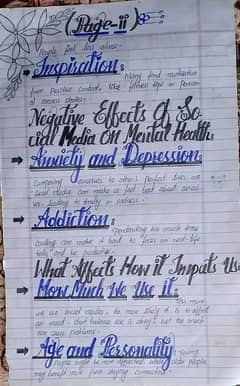 (Page-ii)
People feel less alone.
Inspiration:
Many find motivation
from positive content, like fitness tips or person-
al success stories.
Negative Effects Of So-
cial Media On Mental Health:
Anxiety and Depression:
Comparing ourselves to others' perfect lives on
social media can make us feel bad about oursel-
ves, leading to anxiety or sadness.
Addiction:
Spending too much time
scrolling can make it hard to focus on real-life
tasks and be productive.
What Affects How it Impats Us
How Much We Use it:
The more
we use social media, the more likely it is to affect
our mood
can cause problems.
Age and Personality
people
might benefit more from staying connected.